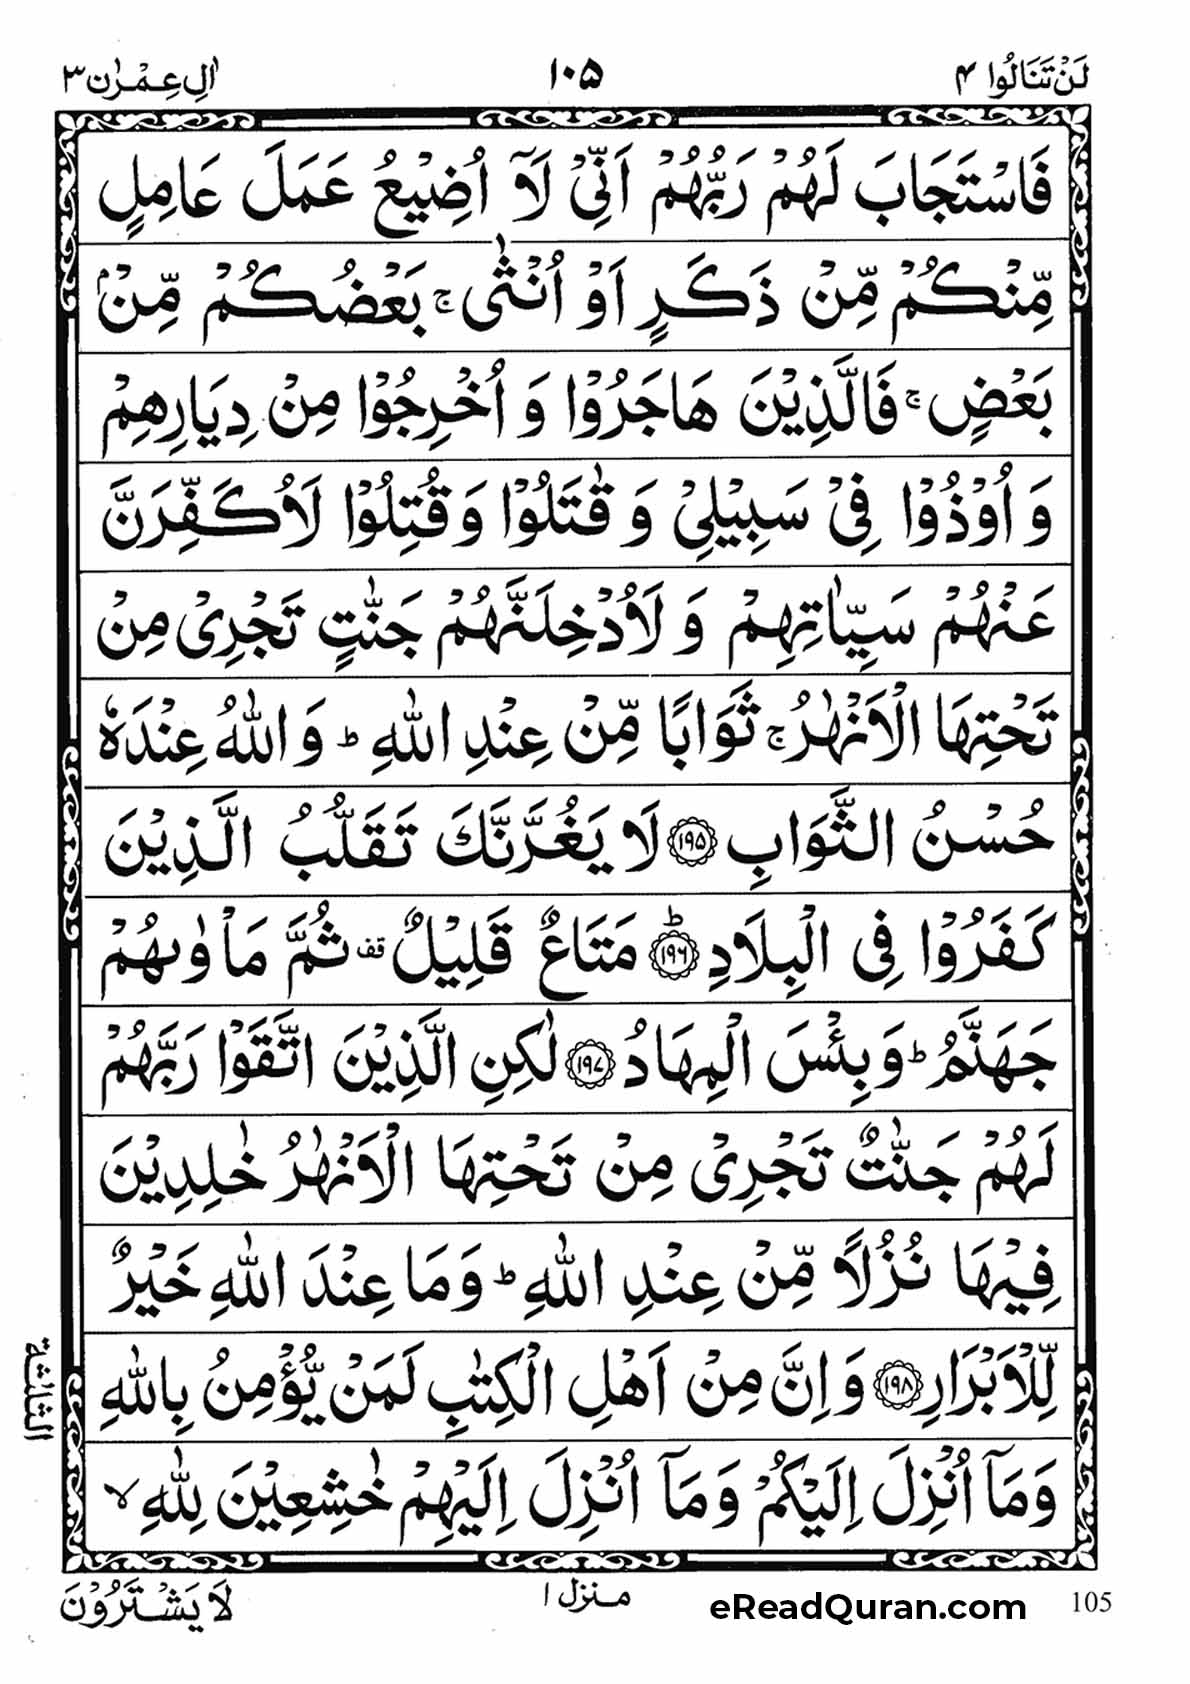 لَنْ تَنَالُوا ۴
۱۰۵
اٰلِ عِمْرٰن ۳
فَاسْتَجَابَ لَهُمْ رَبُّهُمْ اَنِّیْ لَاۤ اُضِیْعُ عَمَلَ عَامِلٍ
مِّنْكُمْ مِّنْ ذَكَرٍ اَوْ اُنْثٰی ۚ بَعْضُكُمْ مِّنْۢ
بَعْضٍ ۚ فَالَّذِیْنَ هَاجَرُوْا وَ اُخْرِجُوْا مِنْ دِیَارِهِمْ
وَ اُوْذُوْا فِیْ سَبِیْلِیْ وَ قٰتَلُوْا وَ قُتِلُوْا لَاُكَفِّرَنَّ
عَنْهُمْ سَیِّاٰتِهِمْ وَ لَاُدْخِلَنَّهُمْ جَنّٰتٍ تَجْرِیْ مِنْ
تَحْتِهَا الْاَنْهٰرُ ۚ ثَوَابًا مِّنْ عِنْدِ اللّٰهِ ؕ وَ اللّٰهُ عِنْدَهٗ
حُسْنُ الثَّوَابِ ﴿۱۹۵﴾ لَا یَغُرَّنَّكَ تَقَلُّبُ الَّذِیْنَ
كَفَرُوْا فِی الْبِلَادِ ﴿۱۹۶﴾ؕ مَتَاعٌ قَلِیْلٌ قف ثُمَّ مَاْوٰىهُمْ
جَهَنَّمُ ؕ وَ بِئْسَ الْمِهَادُ ﴿۱۹۷﴾ لٰكِنِ الَّذِیْنَ اتَّقَوْا رَبَّهُمْ
لَهُمْ جَنّٰتٌ تَجْرِیْ مِنْ تَحْتِهَا الْاَنْهٰرُ خٰلِدِیْنَ
فِیْهَا نُزُلًا مِّنْ عِنْدِ اللّٰهِ ؕ وَ مَا عِنْدَ اللّٰهِ خَیْرٌ
لِّلْاَبْرَارِ ﴿۱۹۸﴾ وَ اِنَّ مِنْ اَهْلِ الْكِتٰبِ لَمَنْ یُّؤْمِنُ بِاللّٰهِ
وَ مَاۤ اُنْزِلَ اِلَیْكُمْ وَ مَاۤ اُنْزِلَ اِلَیْهِمْ خٰشِعِیْنَ لِلّٰهِ ۙ
الثلثة
لَا یَشْتَرُوْنَ
منزل ۱
eReadQuran.com
105